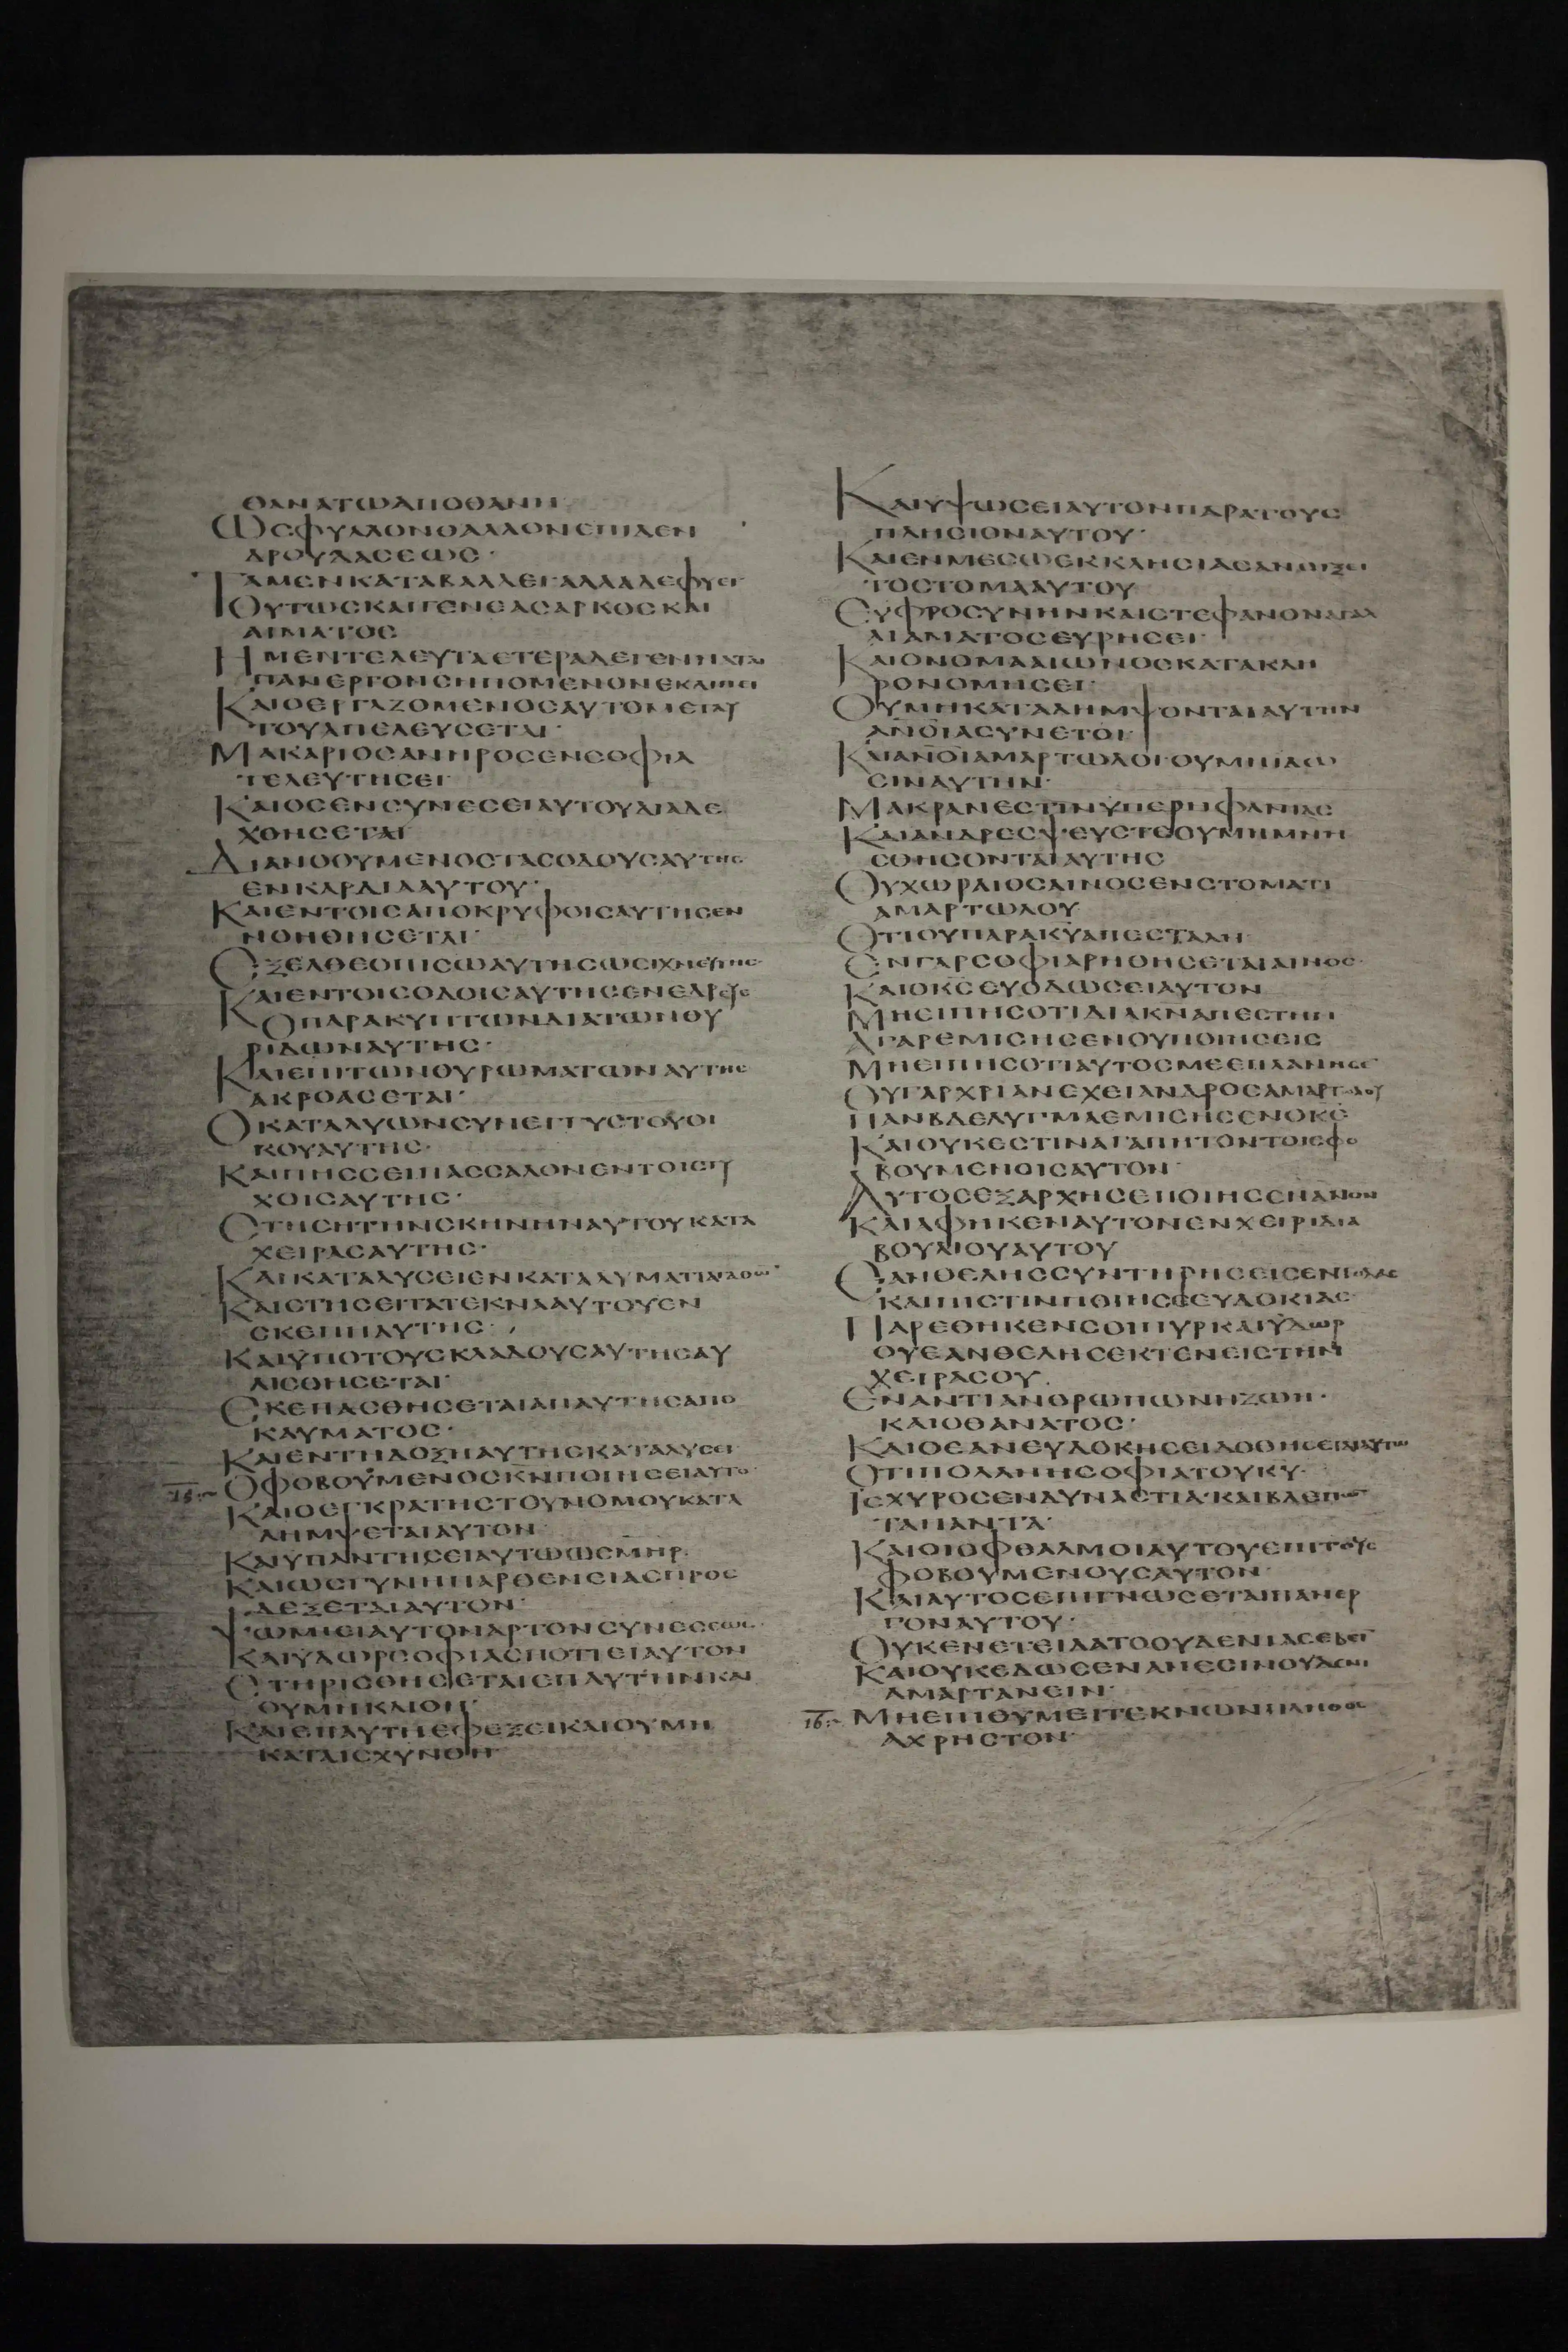 ΘΑΝΑΤΩΑΠΟΘΑΝΗ
ΩΣΦΥΛΛΟΝΘΑΛΛΟΝΕΠΙΔΕΝ
ΔΡΟΥΔΑΣΕΩΣ·
ΤΑΜΕΝΚΑΤΑΒΑΛΛΕΙΑΛΛΑΔΕΦΥΕΙ
ΟΥΤΩΣΚΑΙΓΕΝΕΑΣΑΡΚΟΣΚΑΙ
ΑΙΜΑΤΟΣ
ΗΜΕΝΤΕΛΕΥΤΑΕΤΕΡΑΔΕΓΕΝΝΑΤΑΙ
ΠΑΝΕΡΓΟΝΣΗΠΟΜΕΝΟΝΕΚΛΙΠΕΙ
ΚΑΙΟΕΡΓΑΖΟΜΕΝΟΣΑΥΤΟΜΕΤΑΥ
ΤΟΥΑΠΕΛΕΥΣΕΤΑΙ·
ΜΑΚΑΡΙΟΣΑΝΗΡΟΣΕΝΣΟΦΙΑ
ΤΕΛΕΥΤΗΣΕΙ·
ΚΑΙΟΣΕΝΣΥΝΕΣΕΙΑΥΤΟΥΔΙΑΛΕ
ΧΘΗΣΕΤΑΙ
ΔΙΑΝΟΟΥΜΕΝΟΣΤΑΣΟΔΟΥΣΑΥΤΗΣ
ΕΝΚΑΡΔΙΑΑΥΤΟΥ·
ΚΑΙΕΝΤΟΙΣΑΠΟΚΡΥΦΟΙΣΑΥΤΗΣΕΝ
ΝΟΗΘΗΣΕΤΑΙ·
ΕΞΕΛΘΕΟΠΙΣΩΑΥΤΗΣΩΣΙΧΝΕΥΤΗΣ·
ΚΑΙΕΝΤΟΙΣΟΔΟΙΣΑΥΤΗΣΕΝΕΔΡΕΥΕ
ΟΠΑΡΑΚΥΠΤΩΝΔΙΑΤΩΝΘΥ
ΡΙΔΩΝΑΥΤΗΣ·
ΚΑΙΕΠΙΤΩΝΘΥΡΩΜΑΤΩΝΑΥΤΗΣ
ΑΚΡΟΑΣΕΤΑΙ·
ΟΚΑΤΑΛΥΩΝΣΥΝΕΓΓΥΣΤΟΥΟΙ
ΚΟΥΑΥΤΗΣ·
ΚΑΙΠΗΣΣΕΙΠΑΣΣΑΛΟΝΕΝΤΟΙΣΤΥ
ΧΟΙΣΑΥΤΗΣ·
ΣΤΗΣΗΤΗΝΣΚΗΝΗΝΑΥΤΟΥΚΑΤΑ
ΧΕΙΡΑΣΑΥΤΗΣ·
ΚΑΙΚΑΤΑΛΥΣΕΙΕΝΚΑΤΑΛΥΜΑΤΙΑΓΑΘΩΝ
ΚΑΙΣΤΗΣΕΙΤΑΤΕΚΝΑΑΥΤΟΥΕΝ
ΣΚΕΠΗΑΥΤΗΣ·
ΚΑΙΫΠΟΤΟΥΣΚΛΑΔΟΥΣΑΥΤΗΣΑΥ
ΛΙΣΘΗΣΕΤΑΙ·
ΣΚΕΠΑΣΘΗΣΕΤΑΙΑΠΑΥΤΗΣΑΠΟ
ΚΑΥΜΑΤΟΣ·
ΚΑΙΕΝΤΗΔΟΞΗΑΥΤΗΣΚΑΤΑΛΥΣΕΙ·
ΟΦΟΒΟΥΜΕΝΟΣΚΝΠΟΙΗΣΕΙΑΥΤΟ·
ΚΑΙΟΕΓΚΡΑΤΗΣΤΟΥΝΟΜΟΥΚΑΤΑ
ΛΗΜΨΕΤΑΙΑΥΤΟΝ
ΚΑΙΥΠΑΝΤΗΣΕΙΑΥΤΩΩΣΜΗΡ·
ΚΑΙΩΣΓΥΝΗΠΑΡΘΕΝΕΙΑΣΠΡΟΣ
ΔΕΞΕΤΑΙΑΥΤΟΝ·
ΨΩΜΙΕΙΑΥΤΟΝΑΡΤΟΝΣΥΝΕΣΕΩΣ·
ΚΑΙΫΔΩΡΣΟΦΙΑΣΠΟΤΙΕΙΑΥΤΟΝ
ΣΤΗΡΙΣΘΗΣΕΤΑΙΕΠΑΥΤΗΝΚΑΙ
ΟΥΜΗΚΛΙΘΗ·
ΚΑΙΕΠΑΥΤΗΕΦΕΞΕΙΚΑΙΟΥΜΗ
ΚΑΤΑΙΣΧΥΝΘΗ·
ΚΑΙΥΨΩΣΕΙΑΥΤΟΝΠΑΡΑΤΟΥΣ
ΠΛΗΣΙΟΝΑΥΤΟΥ·
ΚΑΙΕΝΜΕΣΩΕΚΚΛΗΣΙΑΣΑΝΟΙΞΕΙ
ΤΟΣΤΟΜΑΑΥΤΟΥ
ΕΥΦΡΟΣΥΝΗΝΚΑΙΣΤΕΦΑΝΟΝΑΓΑΛ
ΛΙΑΜΑΤΟΣΕΥΡΗΣΕΙ·
ΚΑΙΟΝΟΜΑΑΙΩΝΟΣΚΑΤΑΚΛΗ
ΡΟΝΟΜΗΣΕΙ·
ΟΥΜΗΚΑΤΑΛΗΜΨΟΝΤΑΙΑΥΤΗΝ
ΑΝΟΙΑΣΥΝΕΤΟΙ·
ΚΑΙΑΝΟΙΑΜΑΡΤΩΛΟΙΟΥΜΗΙΔΩ
ΣΙΝΑΥΤΗΝ·
ΜΑΚΡΑΝΕΣΤΙΝΫΠΕΡΗΦΑΝΙΑΣ
ΚΑΙΑΝΔΡΕΣΨΕΥΣΤΕΟΥΜΗΜΝΗ
ΣΘΗΣΟΝΤΑΙΑΥΤΗΣ
ΟΥΧΩΡΑΙΟΣΑΙΝΟΣΕΝΣΤΟΜΑΤΙ
ΑΜΑΡΤΩΛΟΥ
ΟΤΙΟΥΠΑΡΑΚΥΑΠΕΣΤΑΛΗ·
ΕΝΓΑΡΣΟΦΙΑΡΗΘΗΣΕΤΑΙΑΙΝΟΣ·
ΚΑΙΟΚΣΕΥΟΔΩΣΕΙΑΥΤΟΝ
ΜΗΕΙΠΗΣΟΤΙΔΙΑΚΝΑΠΕΣΤΗΝ
ΑΓΑΡΕΜΙΣΗΣΕΝΟΥΠΟΙΗΣΕΙΣ
ΜΗΕΙΠΗΣΟΤΙΑΥΤΟΣΜΕΕΠΛΑΝΗΣΕ
ΟΥΓΑΡΧΡΙΑΝΕΧΕΙΑΝΔΡΟΣΑΜΑΡΤΩΛΟΥ
ΠΑΝΒΔΕΛΥΓΜΑΕΜΙΣΗΣΕΝΟΚΣ
ΚΑΙΟΥΚΕΣΤΙΝΑΓΑΠΗΤΟΝΤΟΙΣΦΟ
ΒΟΥΜΕΝΟΙΣΑΥΤΟΝ·
ΑΥΤΟΣΕΞΑΡΧΗΣΕΠΟΙΗΣΕΝΑΝΟΝ
ΚΑΙΑΦΗΚΕΝΑΥΤΟΝΕΝΧΕΙΡΙΔΙΑ
ΒΟΥΛΙΟΥΑΥΤΟΥ
ΕΑΝΘΕΛΗΣΣΥΝΤΗΡΗΣΕΙΣΕΝΤΟΛΑΣ
ΚΑΙΠΙΣΤΙΝΠΟΙΗΣΕΕΥΔΟΚΙΑΣ
ΠΑΡΕΘΗΚΕΝΣΟΙΠΥΡΚΑΙΫΔΩΡ
ΟΥΕΑΝΘΕΛΗΣΕΚΤΕΝΕΙΣΤΗΝ
ΧΕΙΡΑΣΟΥ.
ΕΝΑΝΤΙΑΝΘΡΩΠΩΝΗΖΩΗ·
ΚΑΙΟΘΑΝΑΤΟΣ·
ΚΑΙΟΕΑΝΕΥΔΟΚΗΣΕΙΔΟΘΗΣΕΤΑΙΑΥΤΩ
ΟΤΙΠΟΛΛΗΗΣΟΦΙΑΤΟΥΚΥ·
ΙΣΧΥΡΟΣΕΝΔΥΝΑΣΤΙΑ·ΚΑΙΒΛΕΠΩΝ
ΤΑΠΑΝΤΑ·
ΚΑΙΟΙΟΦΘΑΛΜΟΙΑΥΤΟΥΕΠΙΤΟΥΣ
ΦΟΒΟΥΜΕΝΟΥΣΑΥΤΟΝ·
ΚΑΙΑΥΤΟΣΕΠΙΓΝΩΣΕΤΑΙΠΑΝΕΡ
ΓΟΝΑΥΤΟΥ·
ΟΥΚΕΝΕΤΕΙΛΑΤΟΟΥΔΕΝΙΑΣΕΒΕΙΝ
ΚΑΙΟΥΚΕΔΩΚΕΝΑΝΕΣΙΝΟΥΔΕΝΙ
ΑΜΑΡΤΑΝΕΙΝ·
ΜΗΕΠΙΘΥΜΕΙΤΕΚΝΩΝΠΛΗΘΟΣ
ΑΧΡΗΣΤΟΝ·